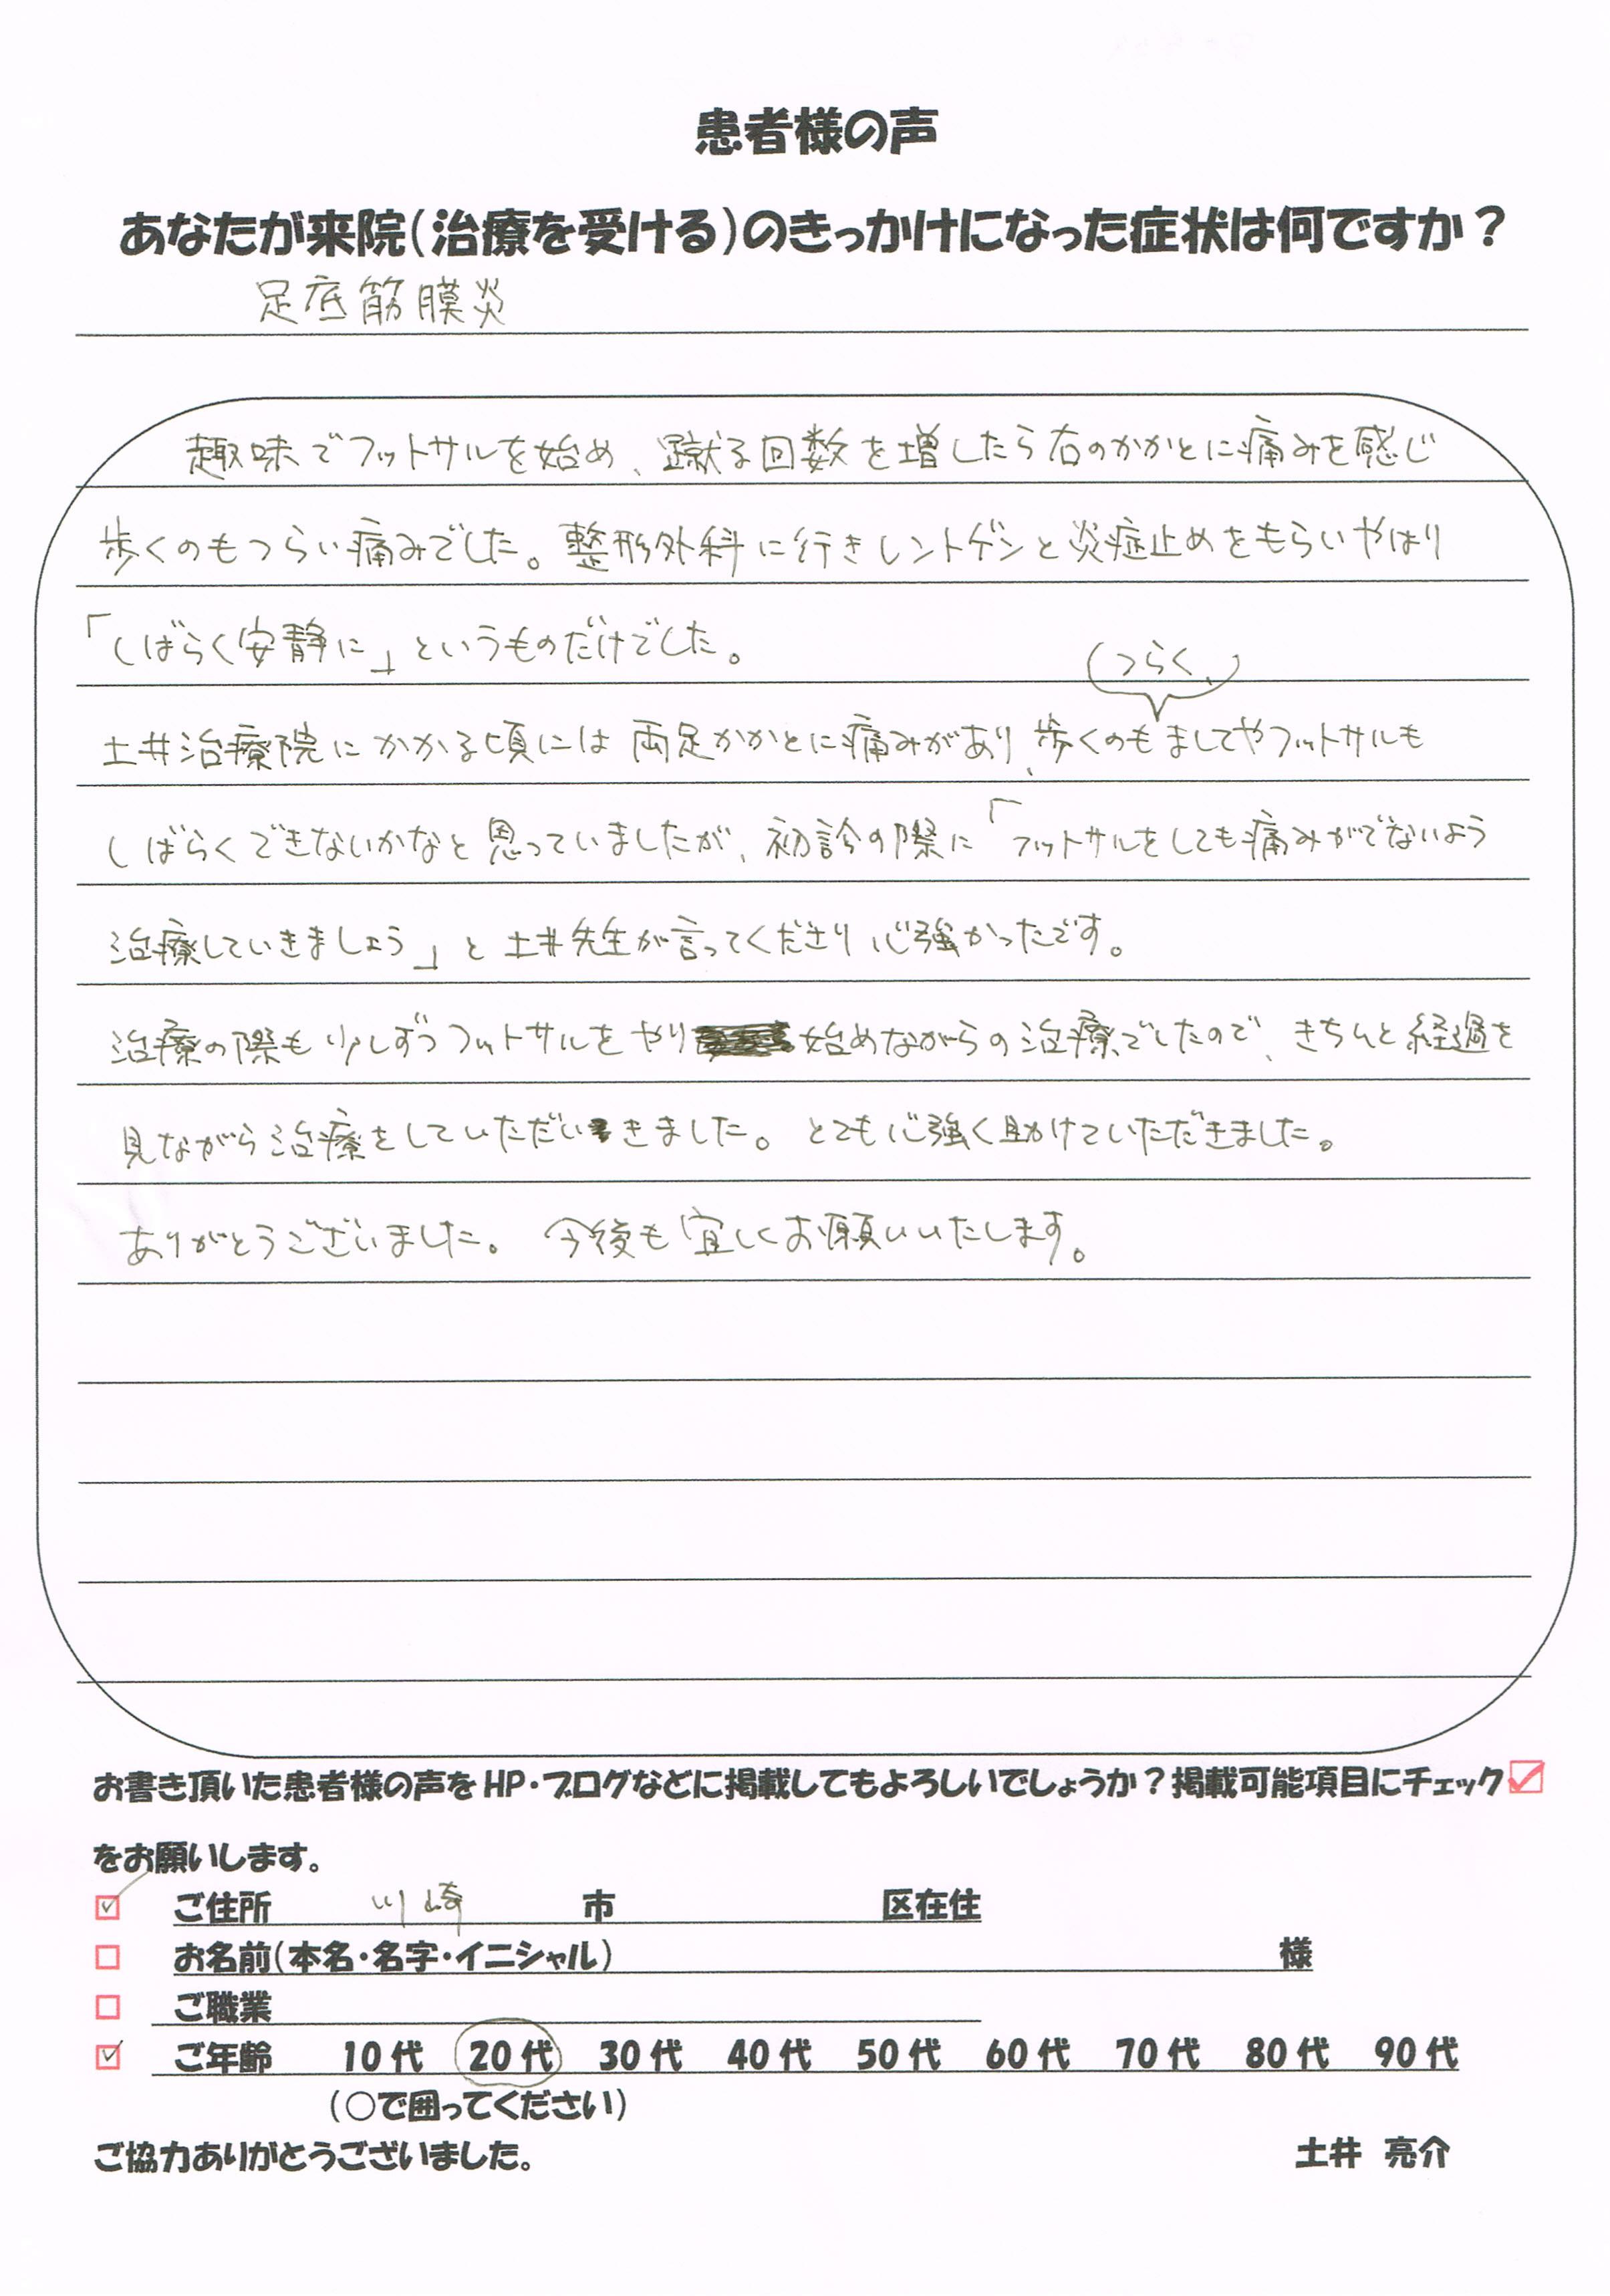 患者様の声
あなたが来院(治療を受ける)のきっかけになった症状は何ですか？
足底筋膜炎
趣味でフットサルを始め、蹴る回数を増したら右のかかとに痛みを感じ
歩くのもつらい痛みでした。整形外科に行きレントゲンと炎症止めをもらいやはり
「しばらく安静に」というものだけでした。
(つらく、)
土井治療院にかかる頃には両足かかとに痛みがあり、歩くのもましてやフットサルも
しばらくできないかなと思っていましたが、初診の際に「フットサルをしても痛みがでないよう
治療していきましょう」と土井先生が言ってくださり心強かったです。
治療の際も少しずつフットサルをやり始めながらの治療でしたので、きちんと経過を
見ながら治療をしていただいきました。とても心強く助けていただきました。
ありがとうございました。今後も宜しくお願いいたします。
お書き頂いた患者様の声をHP・ブログなどに掲載してもよろしいでしょうか？掲載可能項目にチェック☑
をお願いします。
☑ ご住所 川崎 市 区在住
□ お名前(本名・名字・イニシャル) 様
□ ご職業
☑ ご年齢 10代 20代 30代 40代 50代 60代 70代 80代 90代
(○で囲ってください)
ご協力ありがとうございました。 土井 亮介